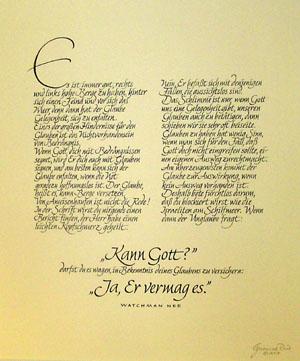 Es ist immer gut, rechts
und links hohe Berge zu haben, hinter
sich einen Feind und vor sich das
Meer, denn dann hat der Glaube
Gelegenheit, sich zu entfalten.
Eines der großen Hindernisse für den
Glauben ist das Nichtvorhandensein
von Bedrängnis.
Wenn Gott dich mit Bedrängnissen
segnet, wird Er dich auch mit Glauben
segnen, und am besten kann sich der
Glaube entfalten, wenn die Not
geradezu hoffnungslos ist. Der Glaube,
heißt es, kann Berge versetzen.
Von Ameisenhaufen ist nicht die Rede!
In der Schrift wirst du nirgends einen
Bericht finden, der Herr habe einen
leichten Kopfschmerz geheilt.
Nein, Er befaßt sich mit denjenigen
Fällen, die aussichtslos sind!
Das Schlimmste ist nur, wenn Gott
uns eine Gelegenheit gibt, unseren
Glauben auch zu betätigen, dann
schieben wir sie sofort beiseite.
Glauben zu haben hat wenig Sinn,
wenn man sich für den Fall, daß
Gott doch nicht eingreifen sollte, ei-
nen eigenen Ausweg zurechtmacht.
Am Herzergreifendsten kommt der
Glaube zur Auswirkung, wenn
kein Ausweg vorhanden ist.
Deshalb fürchte nichts darum,
daß du blockiert wirst wie die
Israeliten am Schilfmeer. Wenn
dann der Unglaube fragt:
„Kann Gott?"
darfst du es wagen, im Bekenntnis deines Glaubens zu versichern:
„Ja, Er vermag es."
WATCHMAN NEE